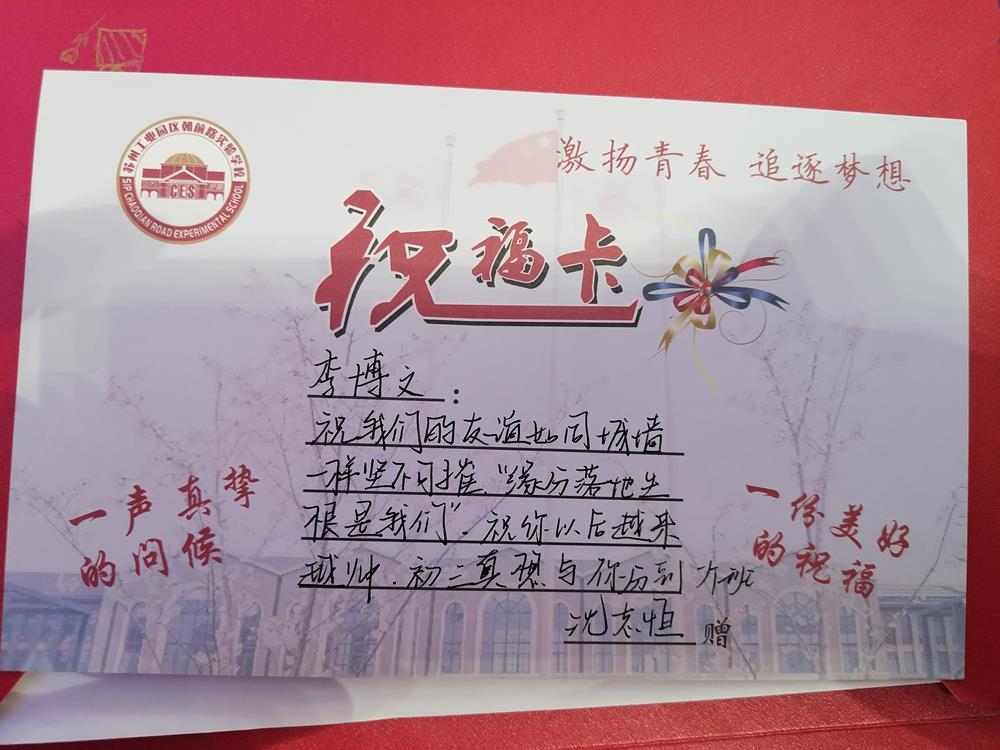 苏州工业园区朝前路实验学校
CES
SIP CHAOQIAN ROAD EXPERIMENTAL SCHOOL
激扬青春 追逐梦想
祝福卡
李博文：
祝我们的友谊如同城墙
一样坚不可摧，“缘分落地生
根是我们”。祝你以后越来
越帅．初二真想与你分到 个班
沈志恒 赠
一声真挚
的问候
一份美好
的祝福